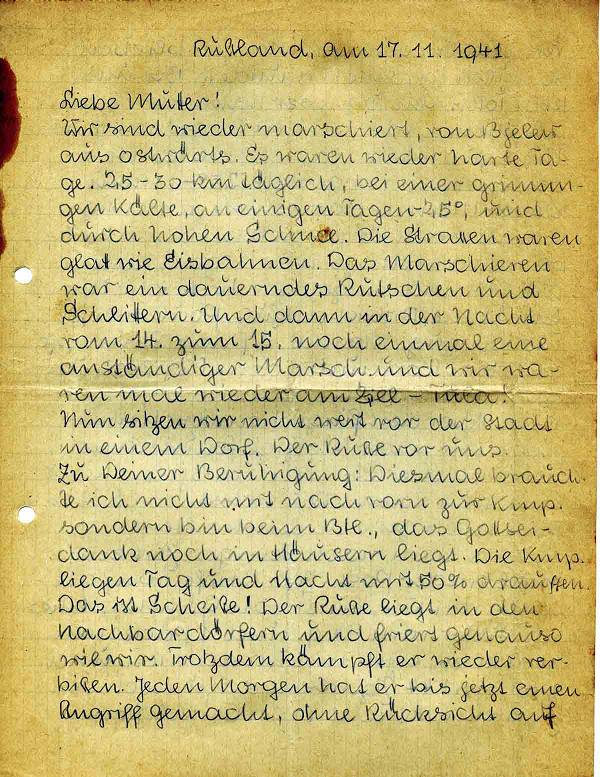 Rußland, am 17. 11. 1941
Liebe Mutter!
Wir sind wieder marschiert, von Bjelew
aus ostwärts. Es waren wieder harte Ta-
ge. 25-30 km täglich, bei einer grimmi-
gen Kälte, an einigen Tagen -25°, und
durch hohen Schnee. Die Strassen waren
glat wie Eisbahnen. Das Marschieren
war ein dauerndes Rutschen und
Schlittern. Und dann in der Nacht
vom 14. zum 15. noch einmal eine
anständiger Marsch und wir wa-
ren mal wieder am Ziel - Tula!
Nun sitzen wir nicht weit vor der Stadt
in einem Dorf. Der Ruße vor uns.
Zu Deiner Beruhigung: Diesmal brauch-
te ich nicht mit nach vorn zur Kmp.
sondern bin beim Btl., das Gottsei-
dank noch in Häusern liegt. Die Kmp.
liegen Tag und Nacht mit 50% draußen.
Das ist Scheiße! Der Ruße liegt in den
Nachbardörfern und friert genauso
wie wir. Trotzdem kämpft er wieder ver-
bißen. Jeden Morgen hat er bis jetzt einen
Angriff gemacht, ohne Rücksicht auf